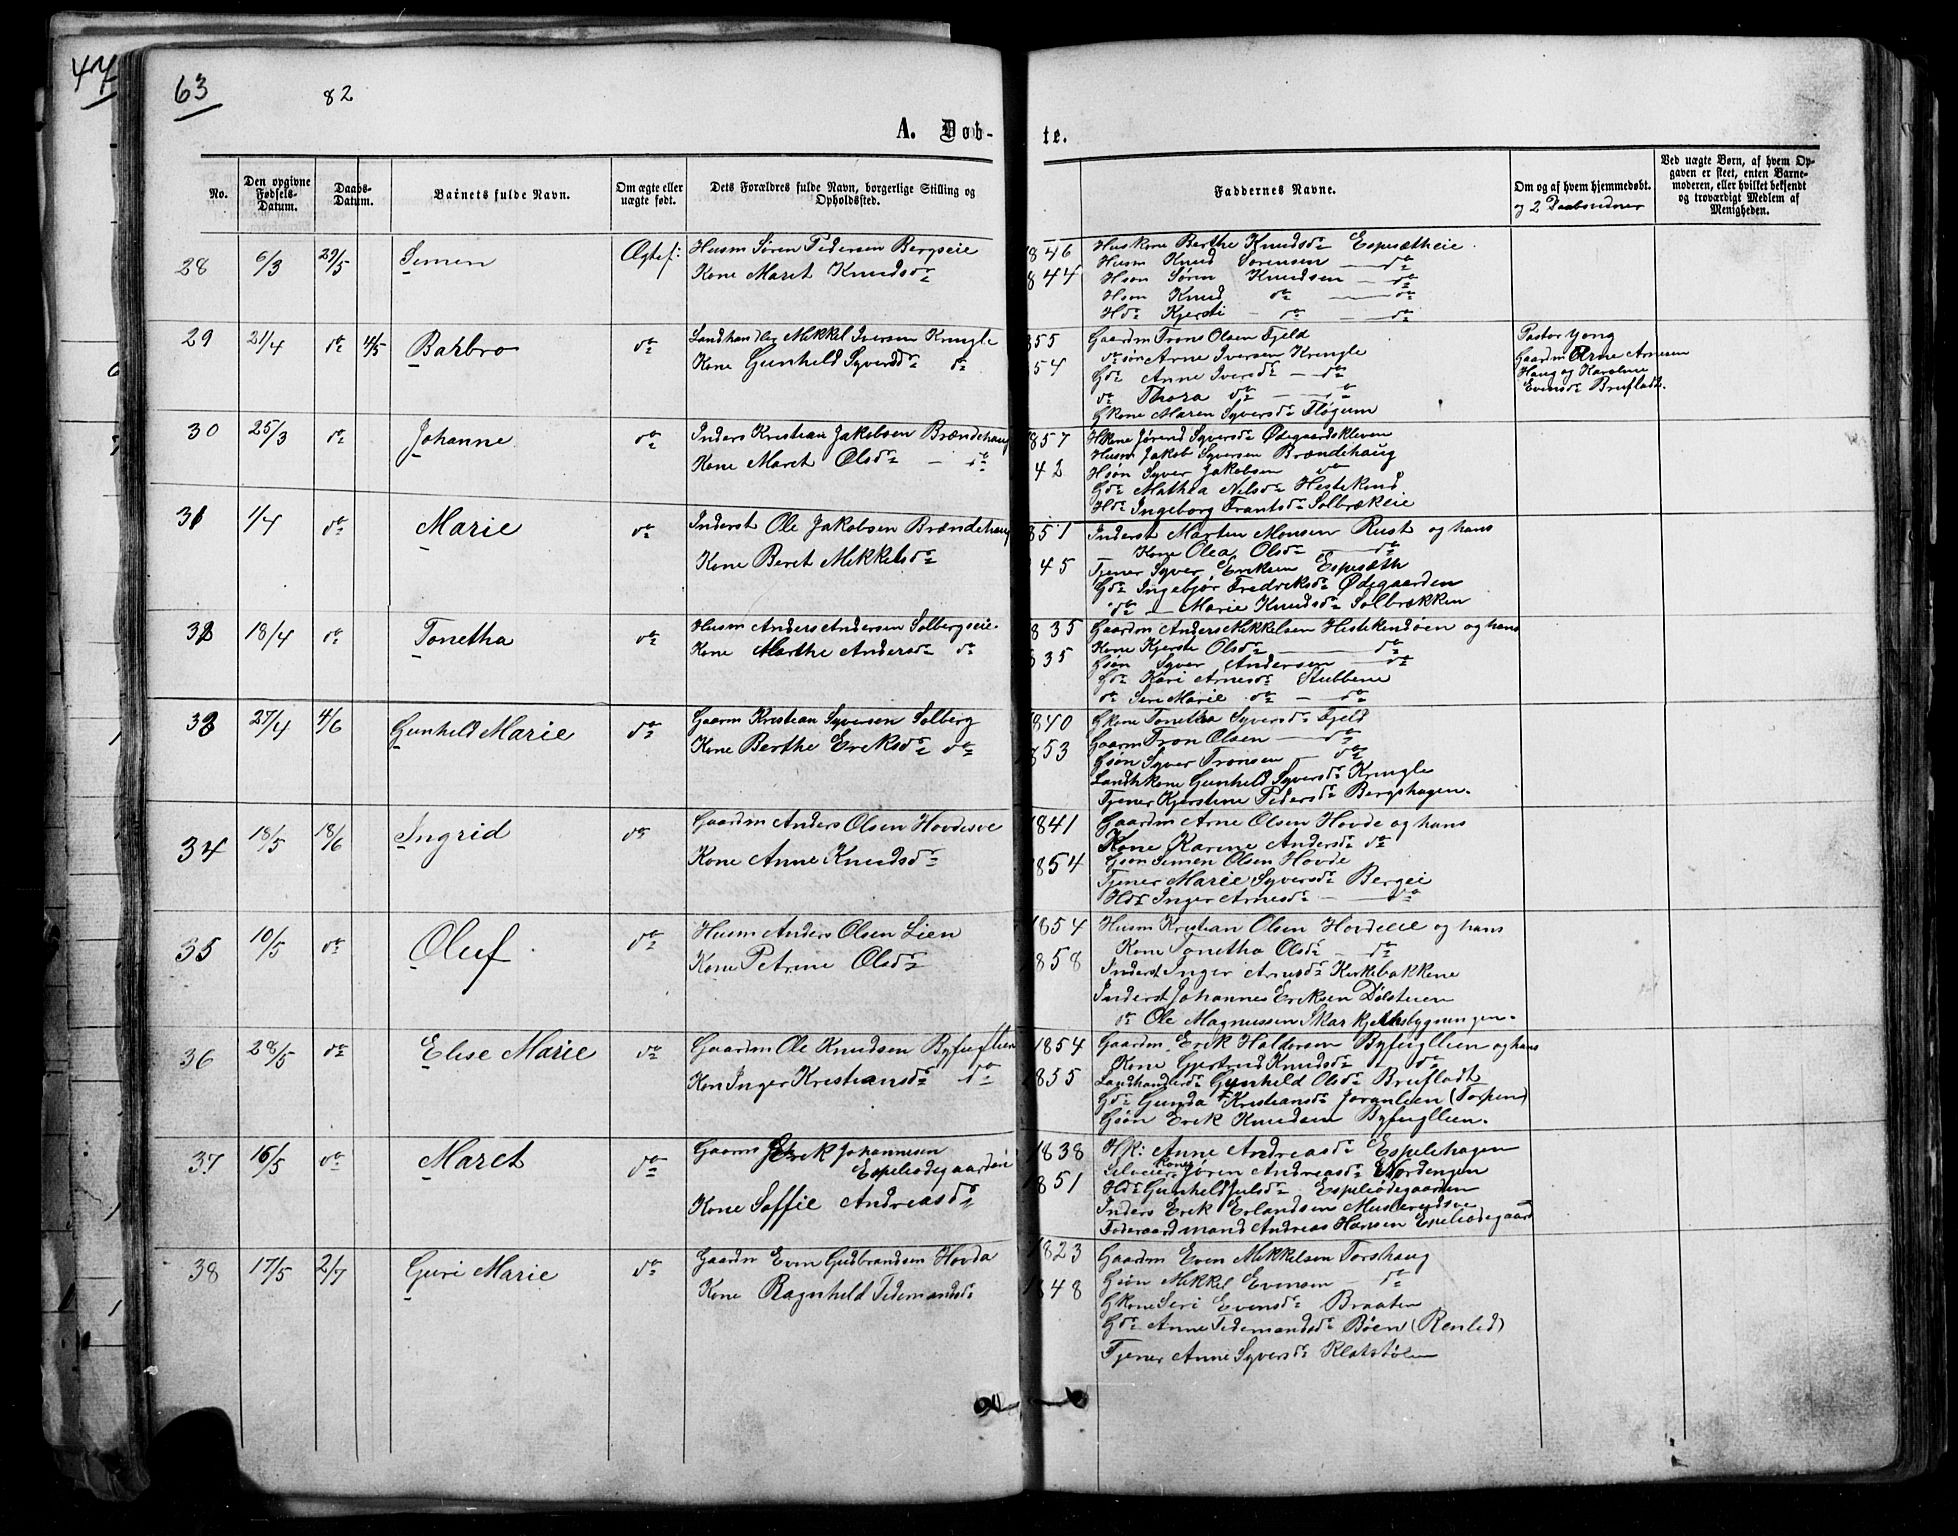 44
63
82
A. Døb-
te.
No.
Den opgivne Fødsels-Datum.
Daabs-Datum.
Barnets fulde Navn.
Om ægte eller uægte født.
Dets Forældres fulde Navn, borgerlige Stilling og Opholdssted.
Faddernes Navne.
Om og af hvem hjemmedøbt.
og 2 Daabsvidner
Ved uægte Børn, af hvem Opgaven er skeet, enten Barnemoderen, eller hvilket bekjendt og troværdigt Medlem af Menigheden.
28 6/3 29/5 Simen Ægtef: Husm Søren Pedersen Bergseie 1846
Kone Maret Knudsdr 1844
Huskone Berthe Knudsdr Espesætheie
Husm Knud Sørensen — do
Hsøn Søren Knudsen — do
Hsøn Knud do — do
Hdr Kjersti — do — do
29 21/4 do 4/5 Barbro do Landhandler Mikkel Iversen Kringle 855
Kone Gunhild Syversdr do 54
Gaardm Trons Olsen Fjeld
do søn Arne Iversen Kringle
Gdr Anne Iversdr — do
do Thora do — do
Gkone Maren Syversdr Fløgum
Pastor Yong
Gaardm Arne Arnesen
Haug og Karoline
Evensdr Brufladt.
30 25/3 do Johanne do Inders Kristian Jakobsen Brændehaug 857
Kone Maret Olsdr — do 42
Hkone Jørend Syversdr Ødegaardskleven
Husm Jakob Syversen Brændehaug
Hsøn Syver Jakobsen do
Gdr Mathea Nelsdr Hestekind
Hdr Ingeborg Frantsdr Solbrækeie
31 1/4 do Marie do Inderst Ole Jakobsen Brændehaug 851
Kone Beret Mikkelsdr 45
Inderst Morten Monsen Rust og hans
Kone Olea Olsdr — do
Tjener Syver Eriksen Espesæth
Gdr Ingebjør Fredriksdr Ødegaarden
do — Marie Knudsdr Solbrækken
32 18/4 do Tonetha do Husm Anders Andersen Solbergseie 835
Kone Marthe Andersdr do 835
Gaardm Anders Mikkelsen Hestekindøen og hans
Kone Kjersti Olsdr — do
Gsøn Syver Andersen — do
Gdr Kari Arnesdr Stubbene
do Seri Marie do — do
33 27/4 4/6 Gunhild Marie do Gaarm Kristian Syversen Solberg 1840
Kone Berthe Eriksdr do 853
Gkone Tonetha Syversdr Fjeld
Gaarm Tron Olsen — do
Gsøn Syver Tronsen — do
Landhkone Gunhild Syversdr Kringle
Tjener Kjerstine Pedersdr Bergshagen.
34 18/5 18/6 Ingrid do Gaardm Anders Olsen Hovdesve 1841
Kone Anne Knudsdr 1854
Gaardm Arne Olsen Hovde og hans
Kone Karine Andersdr do
Gsøn Simen Olsen Hovde
Tjener Marie Syversdr Bergeie
Hdr Inger Arnesdr — do
35 10/5 do Oluf do Husm Anders Olsen Lien 1854
Kone Petrine Olsdr 1858
Husm Kristian Olsen Hovdeeie og hans
Kone Tonetha Olsdr — do
Inderst Inger Arnesdr Kirkebakkene
Inderst Johannes Eriksen Dølsteien
do Ole Magnussen Skarkjelhsbygningen.
36 28/5 do Elise Marie do Gaardm Ole Knudsen Byfuglien 1854
Kon Inger Kristiansdr do 1855
Gaardm Erik Haldorsen Byfuglien og hans
Kone Gjertrud Knudsdr do
Landhandlerdr Gunhild Olsdr Brufladt
Gdr Gunda Kristiansdr Joranlien (Torpen)
Gsøn Erik Knudsen Byfuglien.
37 16/5 do Maret do Gaarm Erik Johannesen Espeliødegaarden 1838
Kone Soffie Andreasdr 1851
Hk: Anne Andreasdr Espelihagen
Selveier Kone Jøren Andreasdr Nordengen
Hdr Gunhild Julsdr Espeliødegaarden
Inders Erik Erlandsen Muslerudsve
Føderaadmand Andreas Hansen Espeliødegaard
38 17/5 2/7 Guri Marie do Gaardm Even Gudbrandsen Hovda 1823
Kone Ragnhild Tidemandsdr 1848
Gaardm Even Mikkelsen Torshaug
Gsøn Mikkel Evensen — do
Gkone Seri Evensdr Braaten
Gdr Anne Tidemandsdr Bøen (Renlid)
Tjener Anne Syversdr Klatstølen